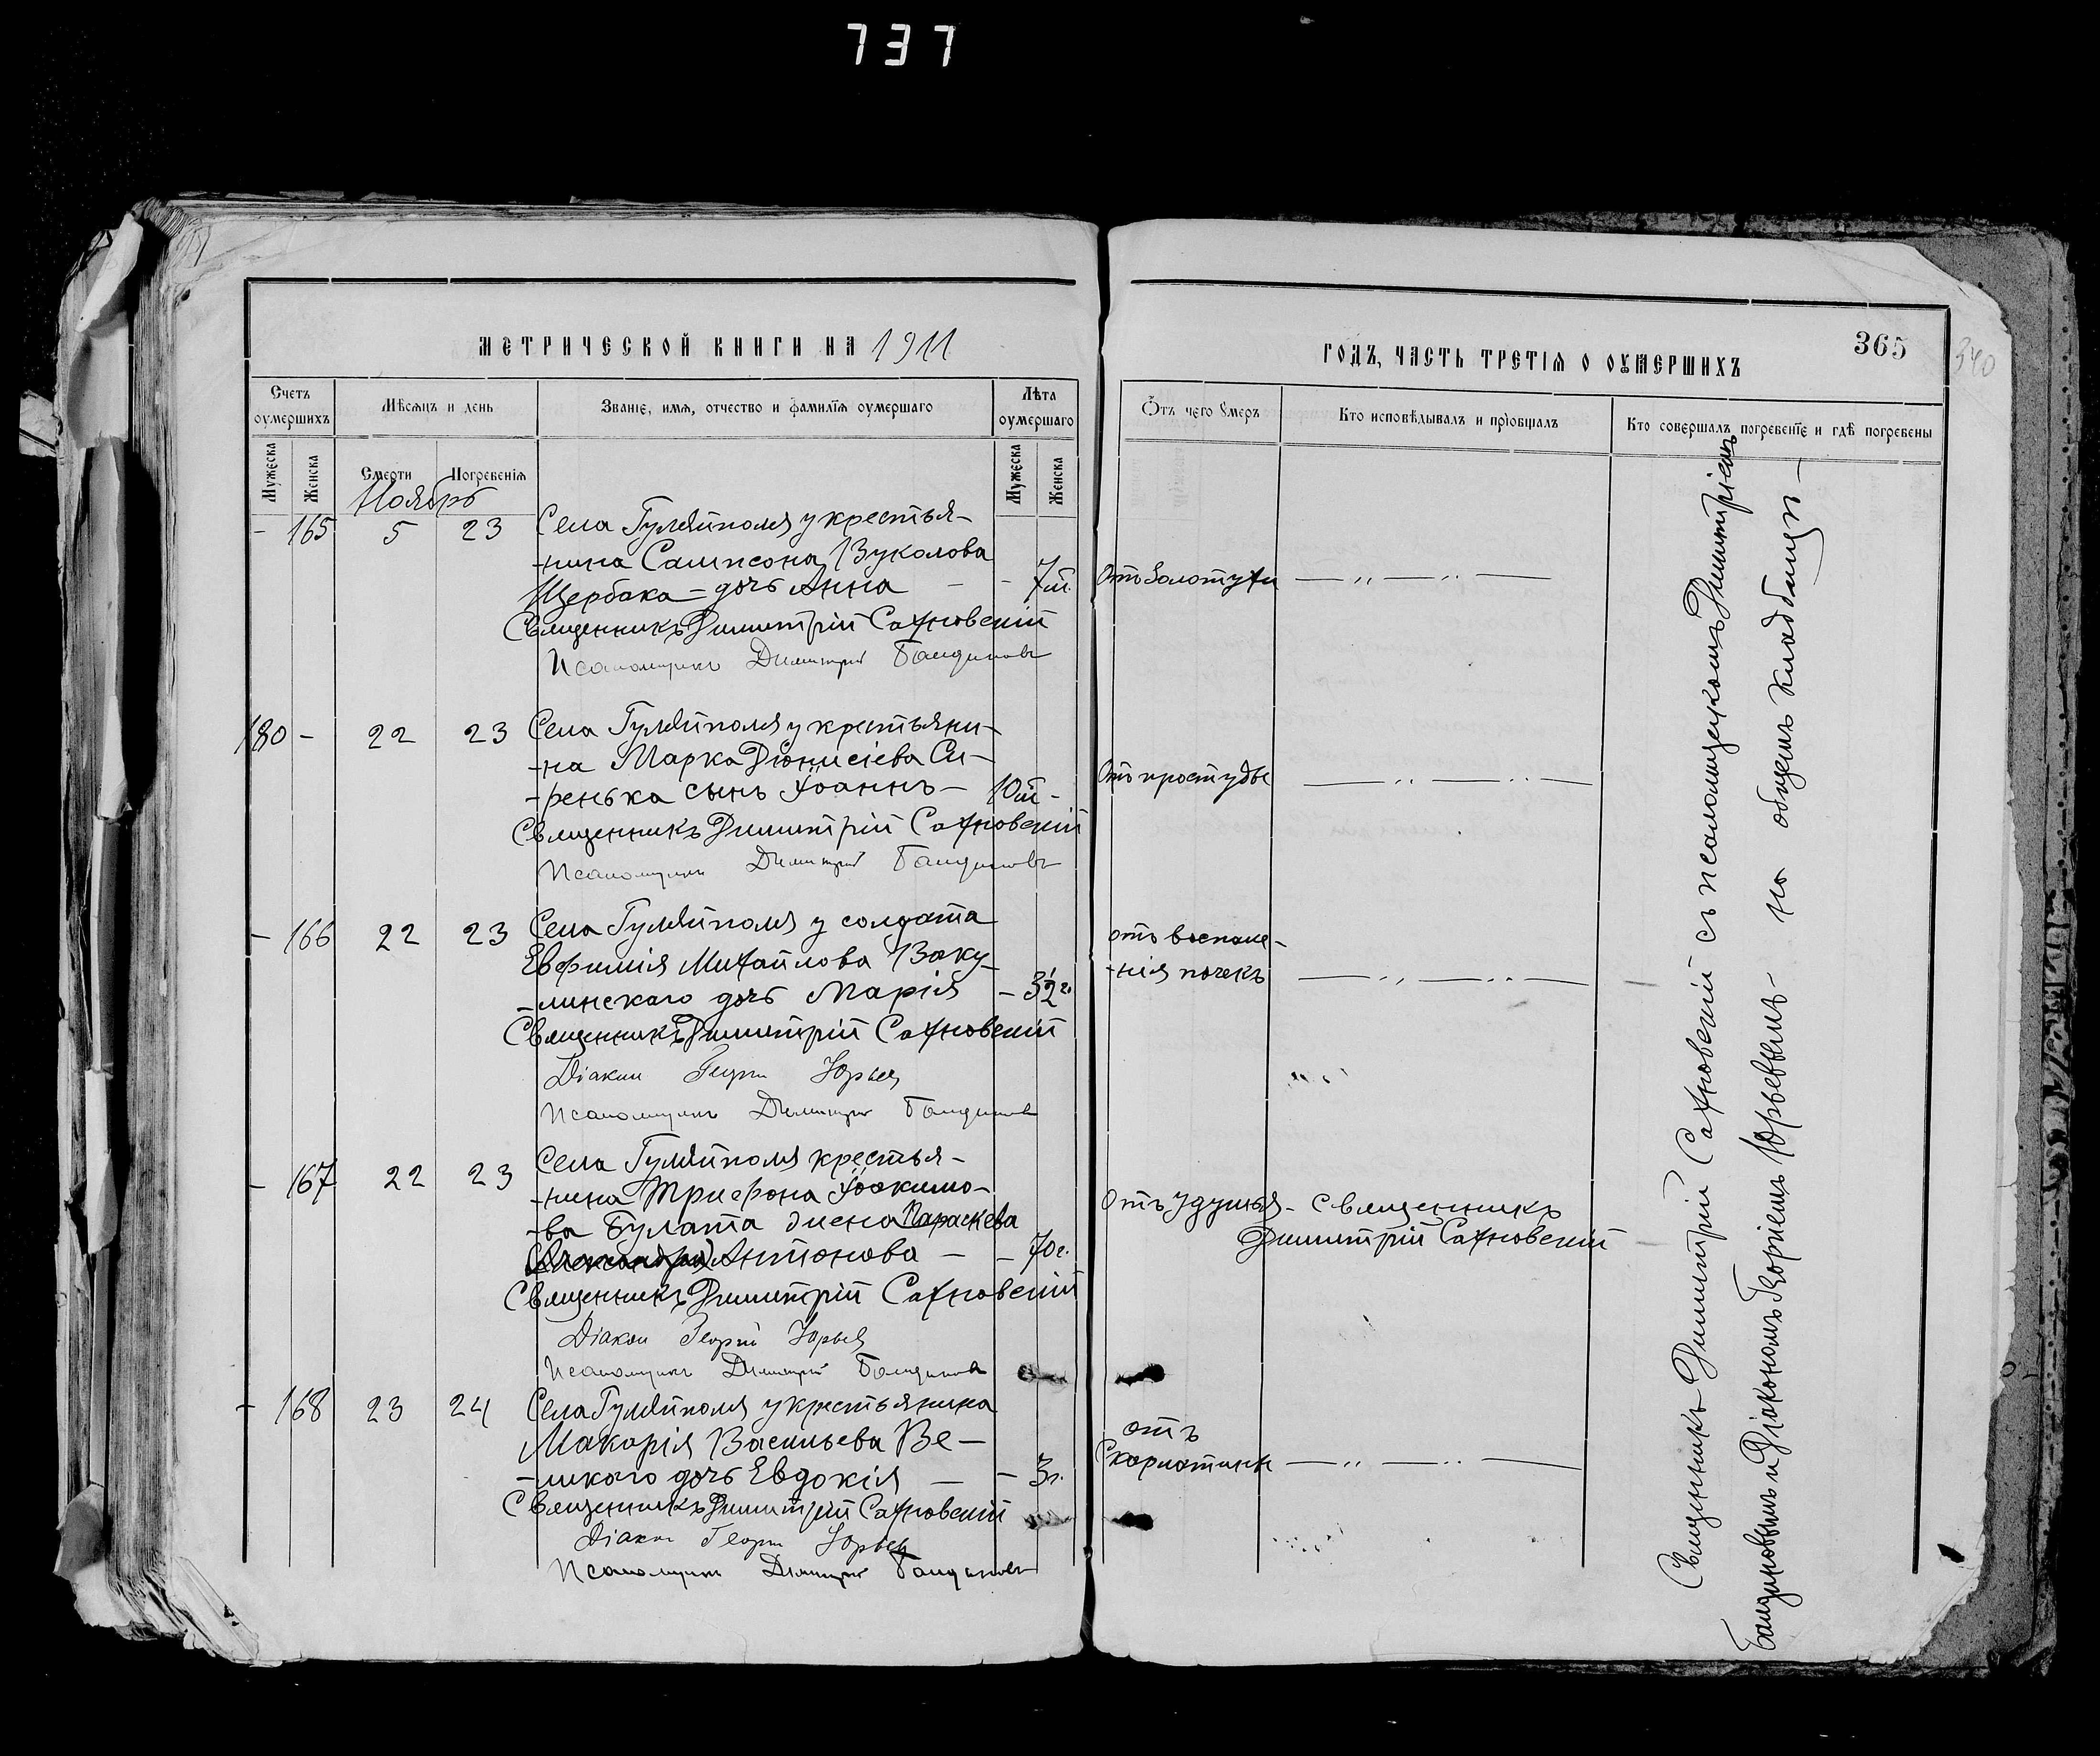 737
МЕТРИЧЕСКОЙ КНИГИ НА 1911
ГОДЪ, ЧАСТЬ ТРЕТІЯ О ОУМЕРШИХЪ
365
340
Счетъ оумершихъ
Мѣсяцъ и день
Званіе, имя, отчество и фамилія оумершаго
Лѣта оумершаго
Отъ чего умеръ
Кто исповѣдывалъ и пріобщалъ
Кто совершалъ погребеніе и гдѣ погребены
Мужеска
Женска
Смерти
Погребенія
Мужеска
Женска
Ноябрь
- 165 5 23 Села Гуляйполя у крестья-
-нина Сампсона Вуколова
Щербака - дочь Анна - - 7м. Отъ золотухи — „ — „ —
Священникъ Димитрій Сахновскій
Псаломщикъ Димитрій Бандиновъ
180 - 22 23 Села Гуляйполя у крестьяни-
-на Марка Діонисіева Си-
-ренька сынъ Іоаннъ - 10м - Отъ простуды — „ — „ —
Священникъ Димитрій Сахновскій
Псаломщикъ Димитрій Бандиновъ
- 166 22 23 Села Гуляйполя у солдата
Евфимія Михайлова Ваку-
-линскаго дочь Марія - 3½ г.
отъ воспале-
-нія почекъ — „ — „ —
Священникъ Димитрій Сахновскій
Діаконъ Георгій Юрьевъ
Псаломщикъ Димитрій Бандиновъ
- 167 22 23 Села Гуляйполя крестья-
-нина Трифона Іоакимо-
-ва Булата жена Параскева
(Александра) Антонова - - 70 г.
Отъ удушья - Священникъ
Димитрій Сахновскій
Священникъ Димитрій Сахновскій
Діаконъ Георгій Юрьевъ
Псаломщикъ Димитрій Бандиновъ
- 168 23 24 Села Гуляйполя у крестьянина
Макарія Васильева Ве-
-ликаго дочь Евдокія - - 3г.
отъ
Скарлатины — „ — „ —
Священникъ Димитрій Сахновскій
Діаконъ Георгій Юрьевъ
Псаломщикъ Димитрій Бандиновъ
Священникъ Димитрій Сахновскій съ псаломщикомъ Димитріемъ
Бандиновымъ и Діакономъ Георгіемъ Юрьевымъ - на общемъ кладбищѣ -